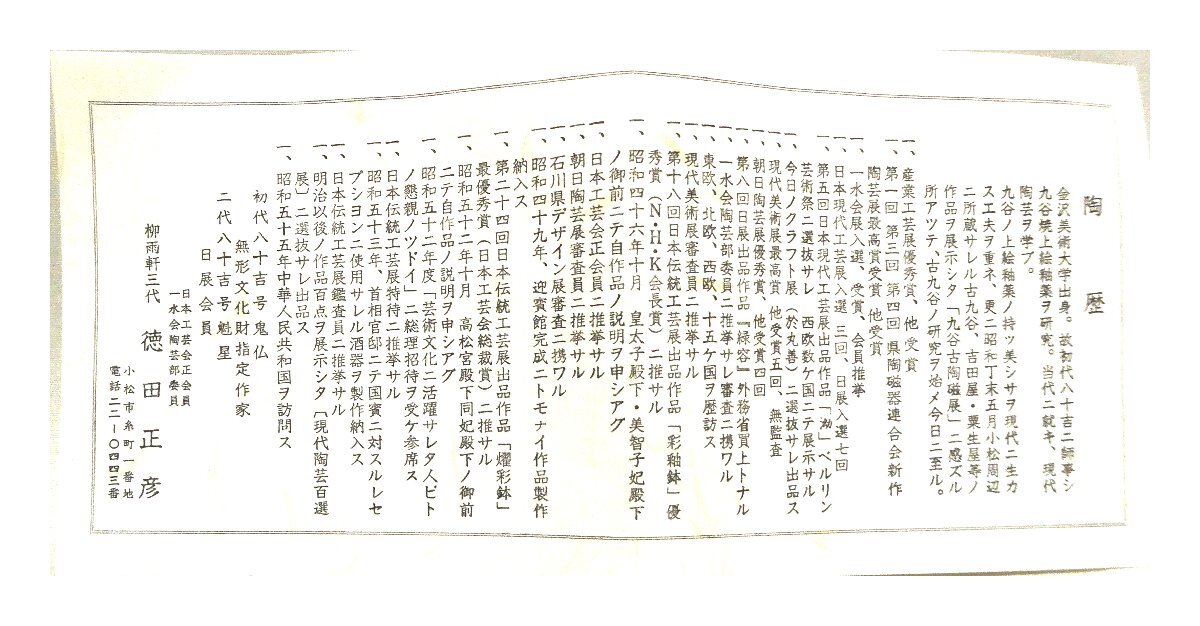 陶歴
金沢美術大学出身。故初代八十吉ニ師事シ
九谷焼上絵釉薬ヲ研究。当代ニ就キ、現代
陶芸ヲ学ブ。
九谷ノ上絵釉薬ノ持ツ美シサヲ現代ニ生カ
ス工夫ヲ重ネ、更ニ昭和丁未五月小松周辺
ニ所蔵サレル古九谷、吉田屋・粟生屋等ノ
作品ヲ展示シタ「九谷古陶磁展」ニ感ズル
所アツテ、古九谷ノ研究ヲ始メ今日ニ至ル。
一、産業工芸展優秀賞、他受賞
一、第一回 第三回 第四回 県陶磁器連合会新作
陶芸展最高賞受賞 他受賞
一、一水会展入選、受賞、会員推挙
一、日本現代工芸展入選 三回、日展入選七回
一、第五回日本現代工芸展出品作品「泑」ベルリン
芸術祭ニ選抜サレ 西欧数ケ国ニテ展示サル
一、今日ノクラフト展（於丸善）ニ選抜サレ出品ス
一、現代美術展最高賞 他受賞五回、無監査
一、朝日陶芸展優秀賞、他受賞四回
一、第八回日展出品作品『緑容』外務省買上トナル
一、一水会陶芸部委員ニ推挙サレ審査ニ携ワル
一、東欧、北欧、西欧、十五ケ国ヲ歴訪ス
一、現代美術展審査員ニ推挙サル
一、第十八回日本伝統工芸展出品作品「彩釉鉢」優
秀賞（N・H・K会長賞）ニ推サル
一、昭和四十六年十月 皇太子殿下・美智子妃殿下
ノ御前ニテ自作品ノ説明ヲ申シアグ
一、日本工芸会正会員ニ推挙サル
一、朝日陶芸展審査員ニ推挙サル
一、石川県デザイン展審査ニ携ワル
一、昭和四十九年、迎賓館完成ニトモナイ作品製作
納入ス
一、第二十四回日本伝統工芸展出品作品「燿彩鉢」
最優秀賞（日本工芸会総裁賞）ニ推サル
一、昭和五十二年十月 高松宮殿下同妃殿下ノ御前
ニテ自作品ノ説明ヲ申シアグ
一、昭和五十二年度「芸術文化ニ活躍サレタ人ビト
ノ懇親ノツドイ」ニ総理招待ヲ受ケ参席ス
一、日本伝統工芸展特待ニ推挙サル
一、昭和五十三年、首相官邸ニテ国賓ニ対スルレセ
プシヨンニ使用サレル酒器ヲ製作納入ス
一、日本伝統工芸展鑑査員ニ推挙サル
一、明治以後ノ作品百点ヲ展示シタ〔現代陶芸百選
展〕ニ選抜サレ出品ス
一、昭和五十五年中華人民共和国ヲ訪問ス
初代八十吉号鬼仏
無形文化財指定作家
二代八十吉号魁星
日展会員
日本工芸会正会員
一水会陶芸部委員
柳雨軒三代 徳田正彦
小松市糸町一番地
電話二二-〇四四三番